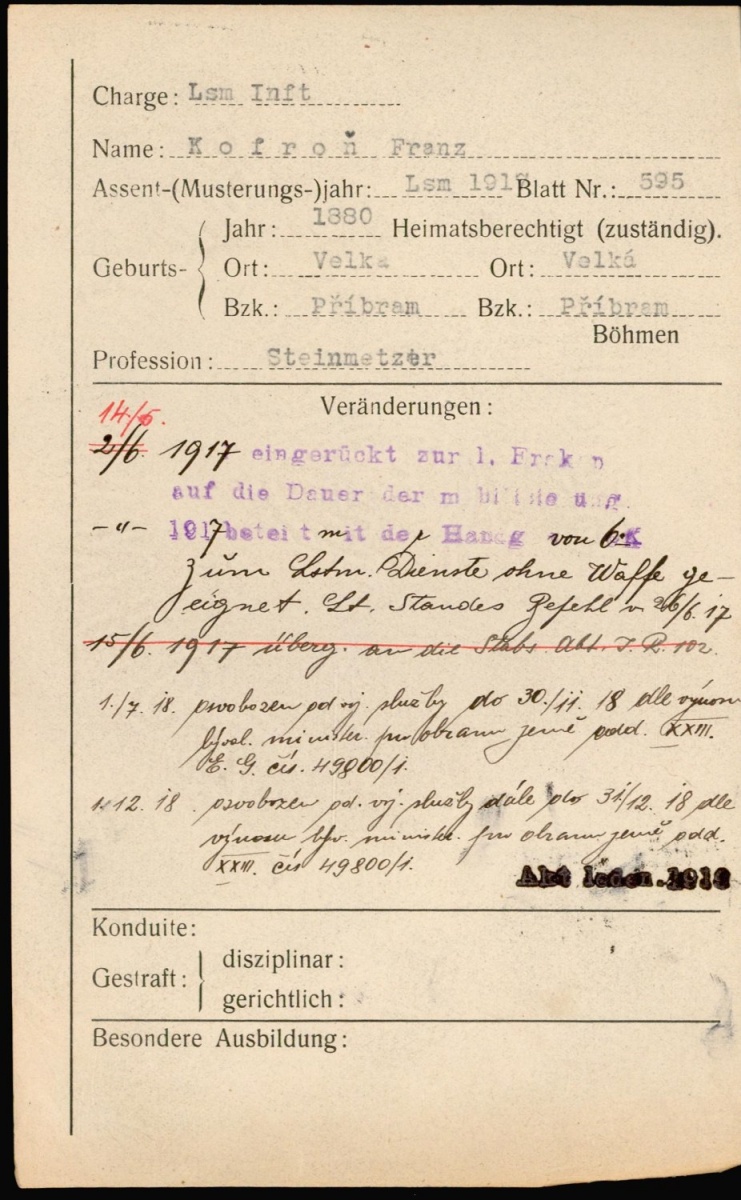 Charge: Lsm Inft
Name: Kofroň Franz
Assent-(Musterungs-)jahr: Lsm 1918 Blatt Nr.: 595
Jahr: 1880 Heimatsberechtigt (zuständig).
Geburts- Ort: Velka Ort: Velká
Bzk.: Příbram Bzk.: Příbram
Böhmen
Profession: Steinmetzer
Veränderungen:
14/6.
2/6. 1917 eingerückt zur 1.
auf die Dauer der
-"- 1917 mit von
zum Lstm. Dienste ohne Waffe ge-
eignet. Lt. Standes Befehl v. 26/6.17
15/6. 1917 überg. an die Stabs. Abt. I. R. 102.
1./7. 18. osvobozen od voj. služby do 30./11. 18 dle výnosu
býval. minister. pro obranu země odd. XXIII.
E. G. čís. 49800/1.
1. 12. 18. osvobozen od. voj. služby dále do 31/12. 18 dle
výnosu býv. minister. pro obranu země odd.
XXIII. čís 49800/1.
Akt leden. 1919
Konduite:
Gestraft: disziplinar:
gerichtlich:
Besondere Ausbildung: